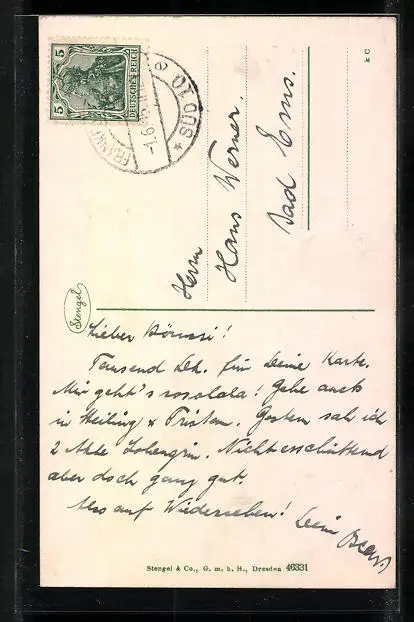 5 5
DEUTSCHES REICH
SÜD 10
Herrn
Hans Werner.
Bad Ems.
Stengel
Lieber
Tausend Dk. für Deine Karte.
Mir geht's sosolala! Gehe auch
in Heiling & Tristan. Gestern sah ich
2 Akte Lohengrin. Nicht erschütternd
aber doch ganz gut.
Also auf Wiedersehen! Dein
Oscar.
Stengel & Co., G. m. b. H., Dresden 46331